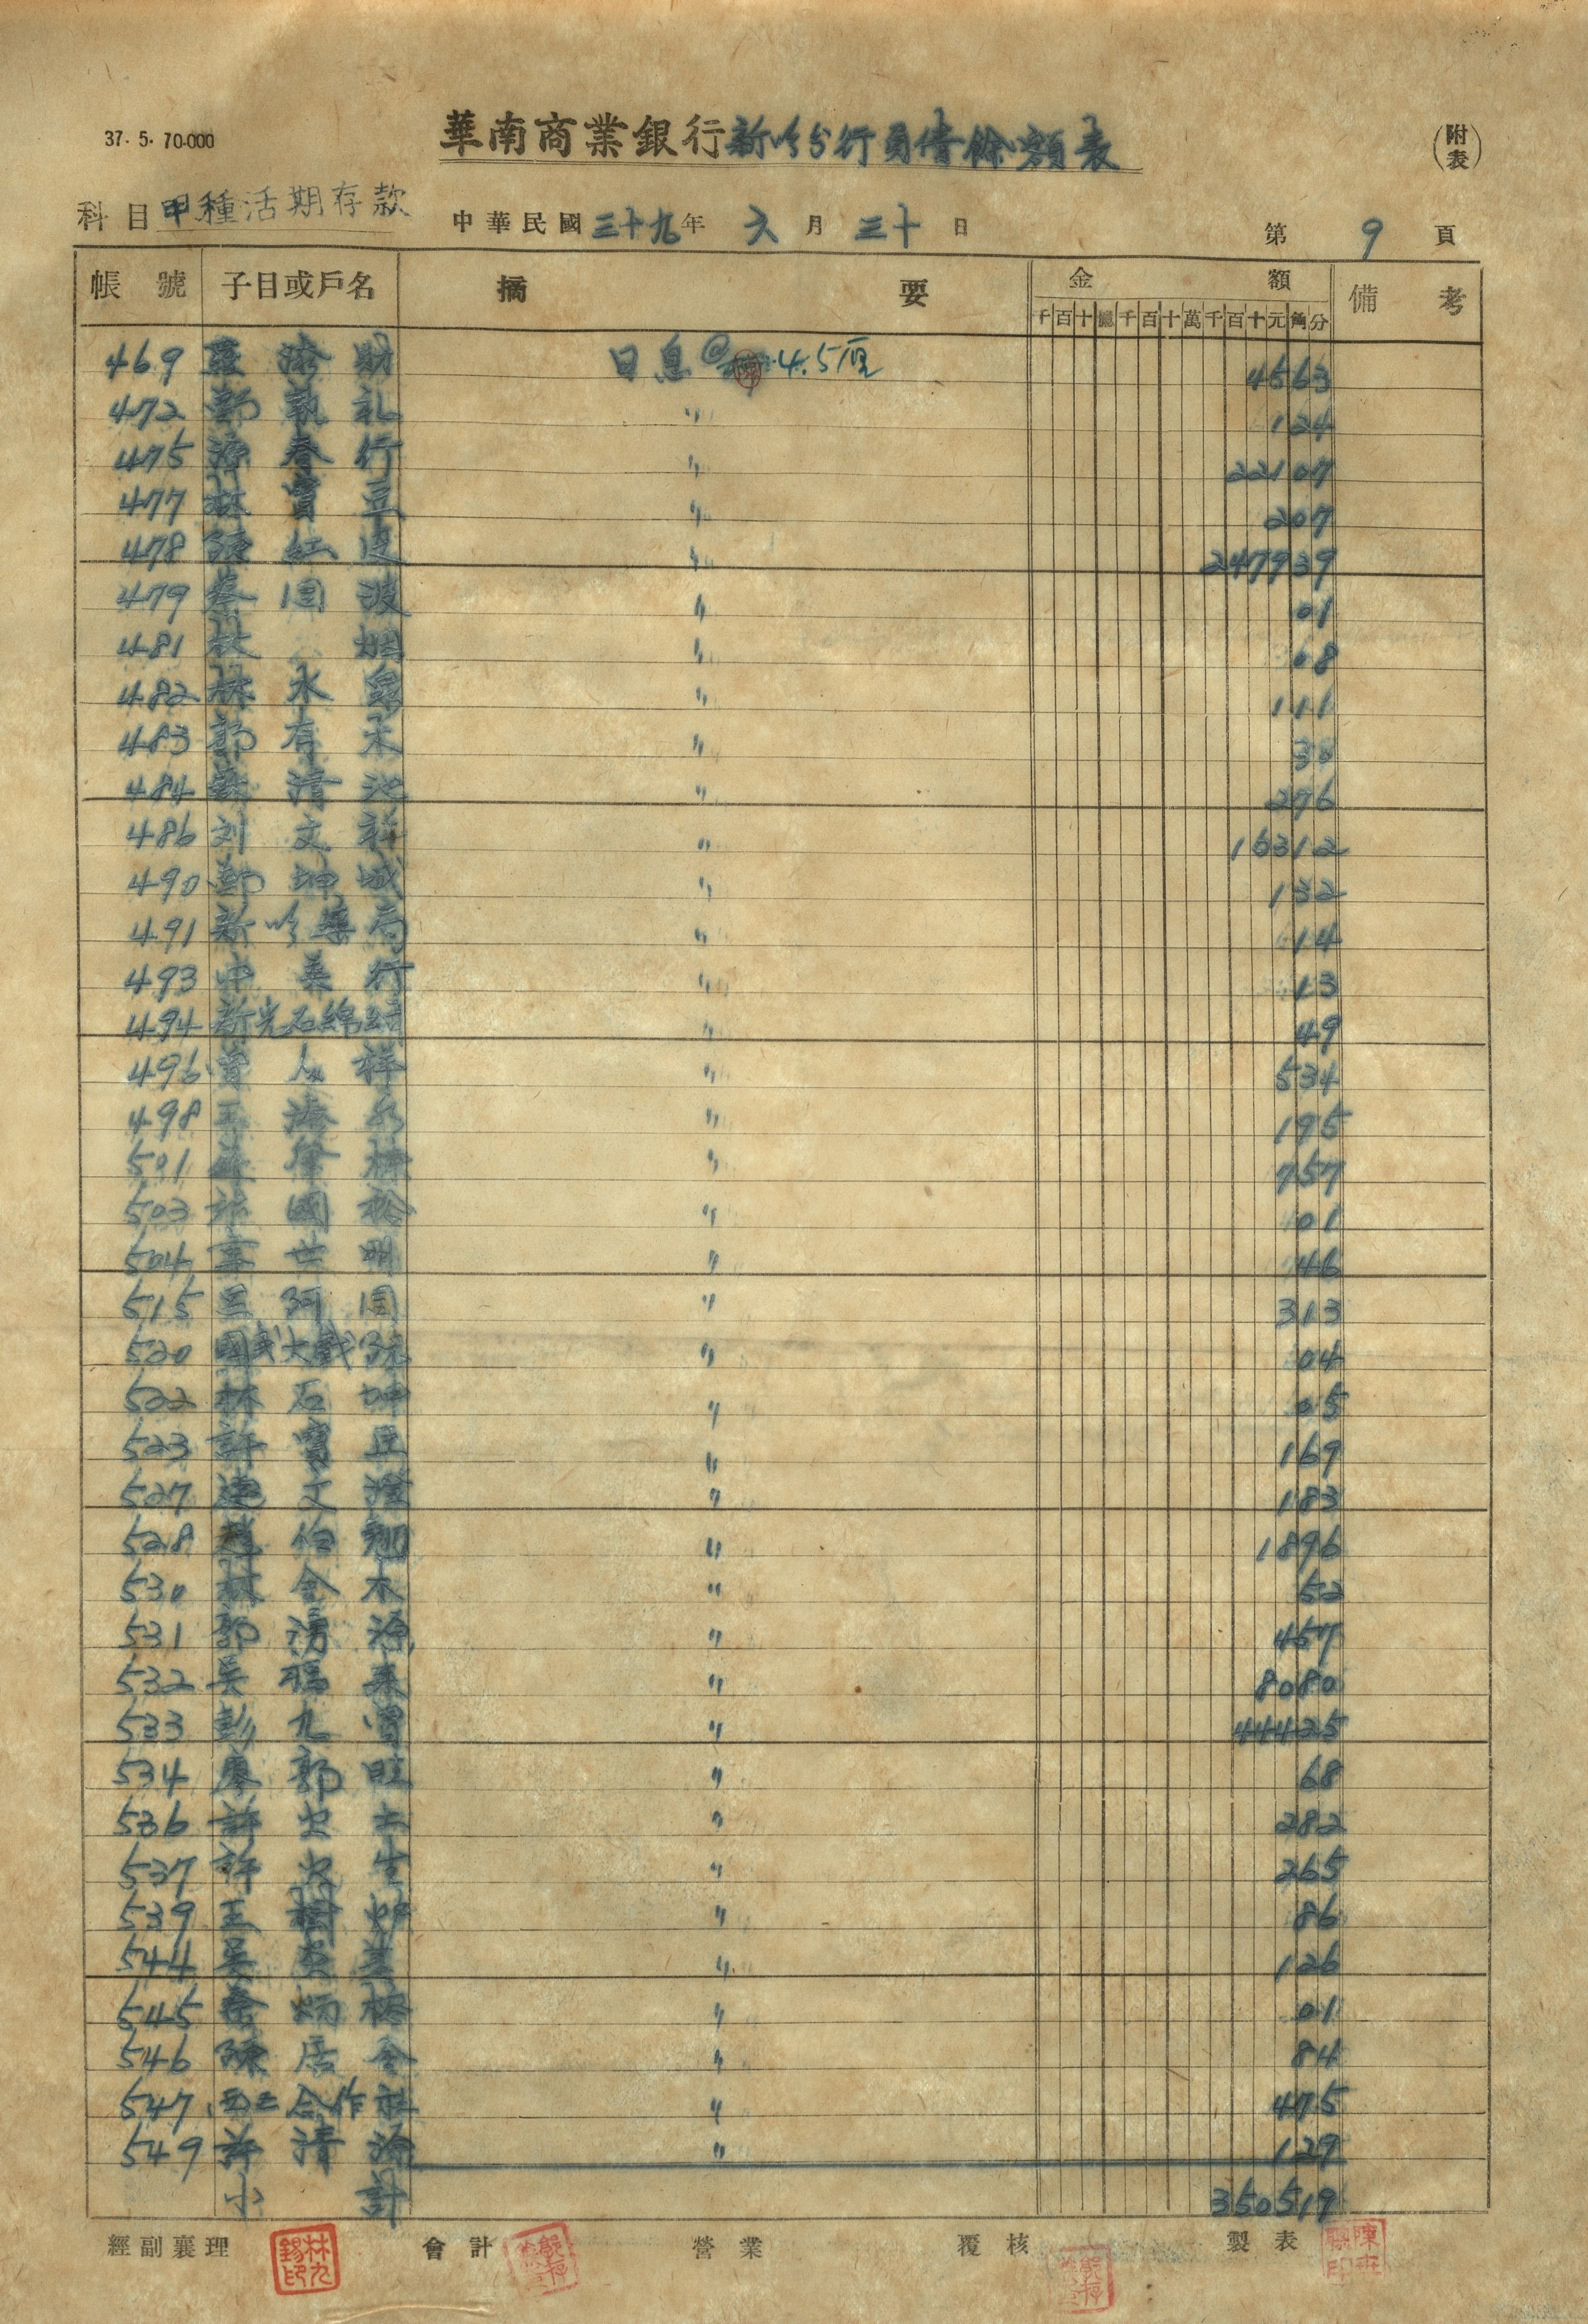 37. 5. 70.000
華南商業銀行新竹分行負債餘額表
(附表)
科目 甲種活期存款
中華民國 三十九年 六月 三十日
第 9 頁
帳號 子目或戶名 摘要 金額 備考
千百十億千百十萬千百十元角分
469 財 日息@ 4.5厘 4563
472 鄭 礼 〃 124
475 源春行 〃 22107
477 林寶豆 〃 207
478 陳紅 〃 247939
479 蔡固波 〃 01
481 〃 08
482 林水泉 〃 111
483 郭存 〃 3
484 清池 〃 296
486 刘文祥 〃 16312
490 鄭坤城 〃 132
491 新竹藥局 〃 14
493 中美行 〃 13
494 新光石綿 〃 49
496 曾人祥 〃 534
498 王 〃 195
501 林 〃 757
503 國松 〃 01
504 世明 〃 46
515 呂阿固 〃 313
520 國民大戲院 〃 04
522 林石坤 〃 05
523 許寶豆 〃 169
527 連文 〃 183
528 趙伯 〃 1896
530 林金木 〃 52
531 郭湧源 〃 457
532 吳福来 〃 8080
533 彭九曾 〃 44425
534 廖郭旺 〃 68
536 許火土 〃 282
537 許火生 〃 265
539 王樹 〃 86
544 吳 〃 126
545 炳 〃 01
546 陳居金 〃 84
547 合作社 〃 475
549 許清 〃 129
小計 350519
經副襄理 會計 營業 覆核 製表
林九錫印